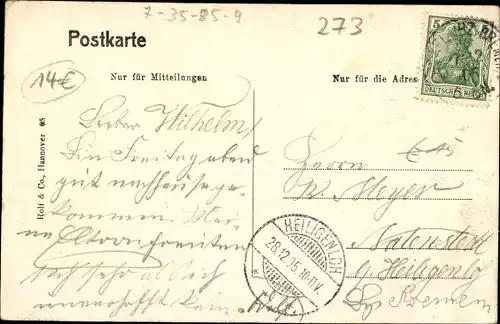 7-35-85-9
273
Postkarte
14€
Nur für Mitteilungen
Nur für die Adres
5
DEUTSCHES REICH
Rolf & Co., Hannover 05
Lieber Wilhelm!
Bin Freitag abend
gut nach Hause ge-
kommen. Mei-
ne Eltern freuten
sich sehr
Herrn
W. Meyer
Natenstedt
b. Heiligenloh
Bz. Bremen
HEILIGENLOH
28.12.05 10-11V